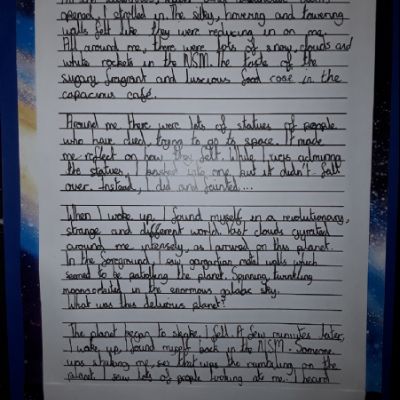 opened, I strolled in. The silky, hovering and towering
walls felt like they were reducing in on me.
All around me, there were lots of snowy clouds and
white rockets in the NSM. The taste of the
sugary fragrant and luscious food rose in the
capacious café.
Around me there were lots of statues of people
who have died, trying to go to space. It made
me reflect on how they felt. While I was admiring
the statues, I bashed into one but it didn't fall
over. Instead, I did and fainted...
When I woke up, I found myself in a revolutionary,
strange and different world. Vast clouds gyrated
around me intensely, as I arrived on this planet.
In the foreground, I saw gargantuan metal walls which
seemed to be patrolling the planet. Spinning, twinkling
moons orbited in the enormous galactic sky.
What was this delirious planet?
The planet began to shake. I fell. A few minutes later,
I woke up. I found myself back in the NSM. Someone
was shaking me, so that was the rumbling on the
planet. I saw lots of people looking at me. I heard